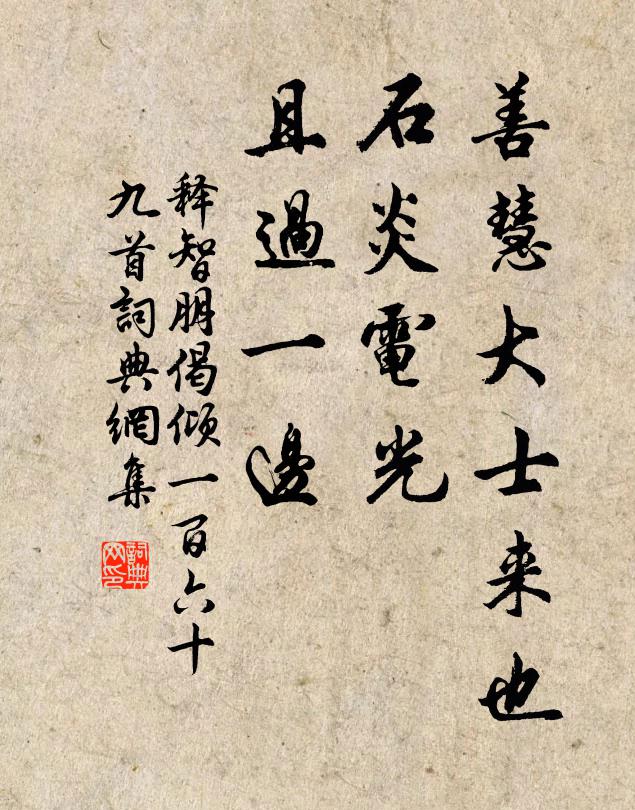 善慧大士来也
石炎電光
且過一邊
释智朋偈倾一百六十
九首詞典網集
詞典
网印